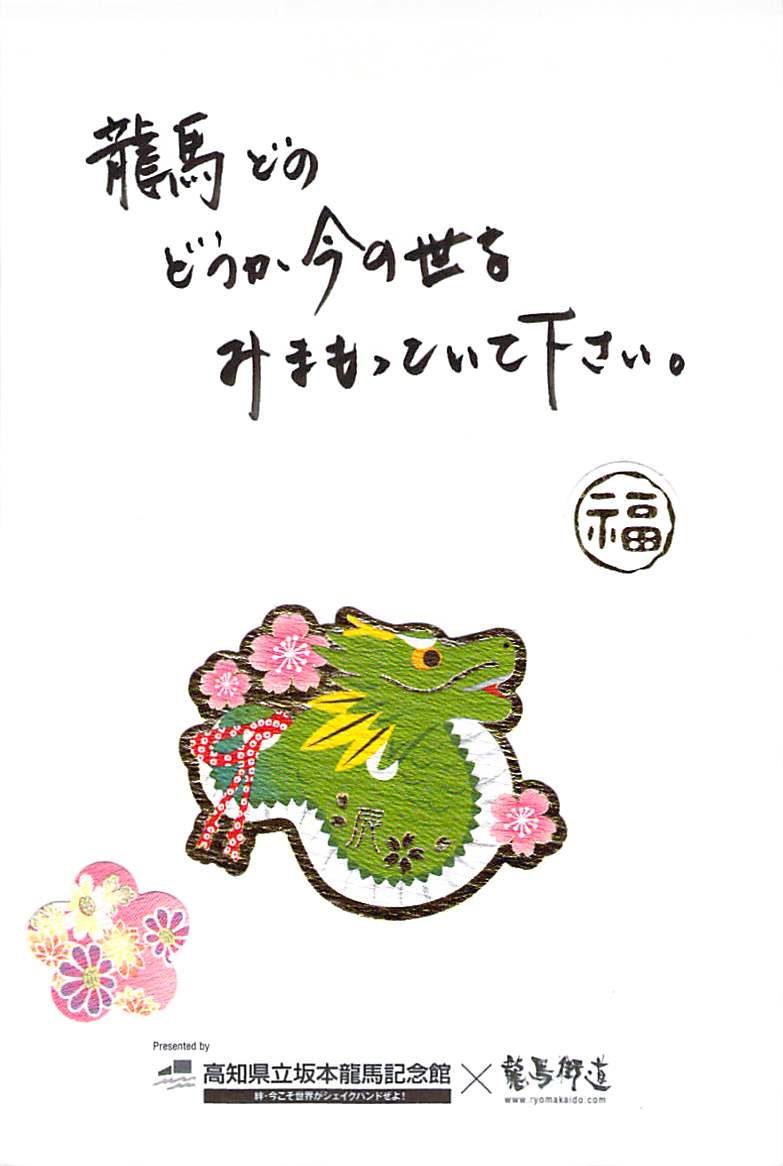 龍馬どの
どうか、今の世を
みまもっていて下さい。
福
辰
Presented by
高知県立坂本龍馬記念館
絆・今こそ世界がシェイクハンドぜよ!
×
龍馬街道
www.ryomakaido.com